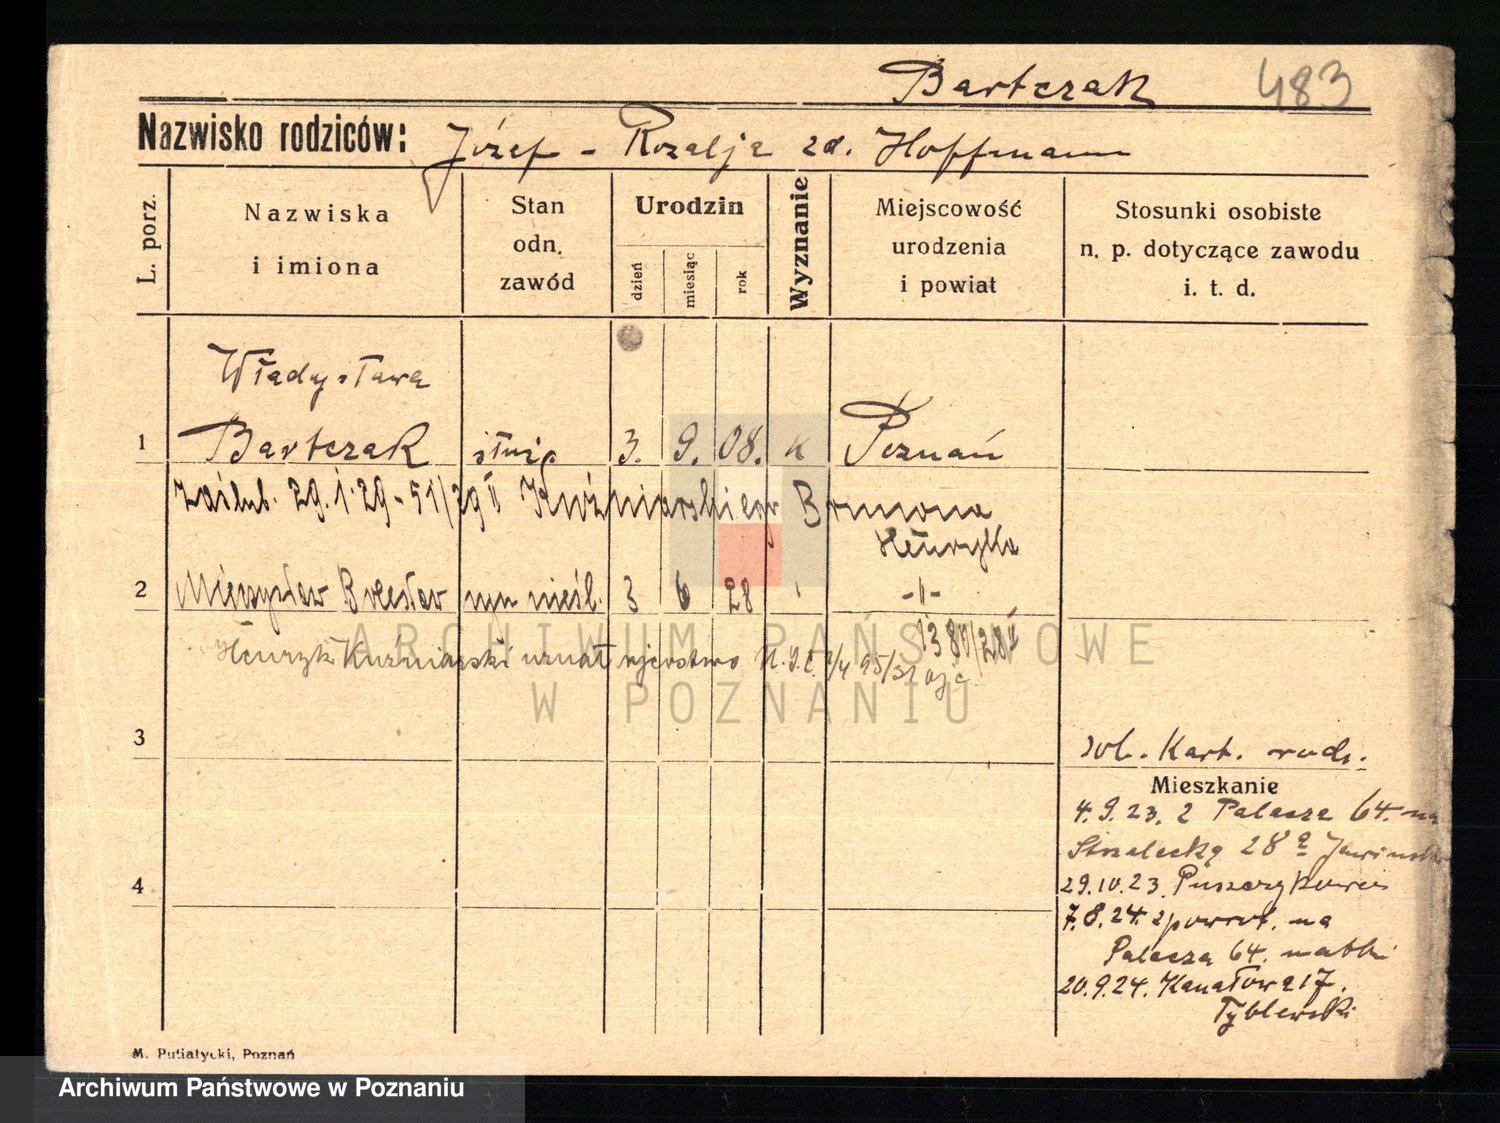 Bartczak 483
Nazwisko rodziców: Józef - Rozalja zd. Hoffmann
L. porz.
Nazwiska i imiona
Stan odn. zawód
Urodzin
dzień
miesiąc
rok
Wyznanie
Miejscowość urodzenia i powiat
Stosunki osobiste n. p. dotyczące zawodu i. t. d.
Władysława
1 Bartczak służ. 3. 9. 08. K Poznań
zaślub. 29.1.29 - 51/29 II Kuźniarskiego Brunona
Henryka
2 Mieczysław Bolesław syn nieśl. 3 6 28 -"-
1380/28 II
Henryk Kuźniarski uznał ojcostwo
3
zob. Kart. rodz.
Mieszkanie
4.9.23. z Palacza 64. na
Strzelecką 28 a
4
29.10.23. Puszczykowo
7.8.24. zpowrot. na
Palacza 64. matki
20.9.24. Kanałowa 17.
Tyblewski
M. Putiatycki, Poznań
ARCHIWUM PAŃSTWOWE
W POZNANIU
Archiwum Państwowe w Poznaniu